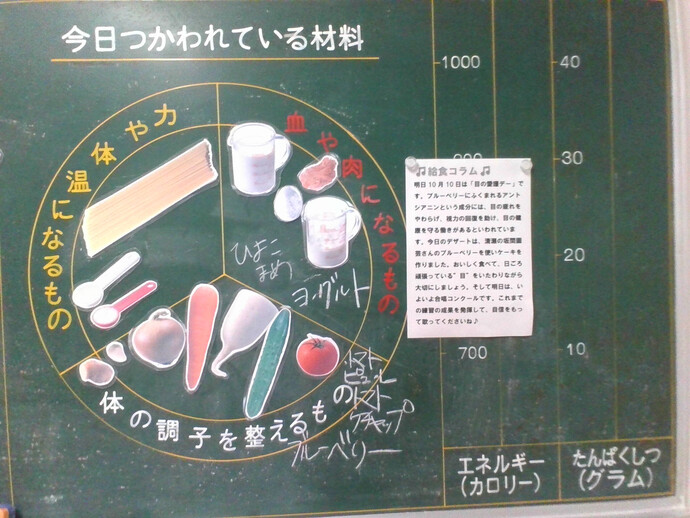 今日つかわれている材料
体や力
温になるもの
血や肉になるもの
ひよこ
まめ
ヨーグルト
体の調子を整えるもの
トマト
ピューレ
トマト
ケチャップ
ブルーベリー
♫給食コラム♫
明日10月10日は「目の愛護デー」で
す。ブルーベリーにふくまれるアント
シアニンという成分には、目の疲れを
やわらげ、視力の回復を助け、目の健
康を守る働きがあるといわれていま
す。今日のデザートは、清瀬の坂間園
芸さんのブルーベリーを使いケーキを
作りました。おいしく食べて、日ごろ
頑張っている"目"をいたわりながら
大切にしましょう。そして明日は、い
よいよ合唱コンクールです。これまで
の練習の成果を発揮して、自信をもっ
て歌ってくださいね♪
1000
700
エネルギー
(カロリー)
40
30
20
10
たんぱくしつ
(グラム)